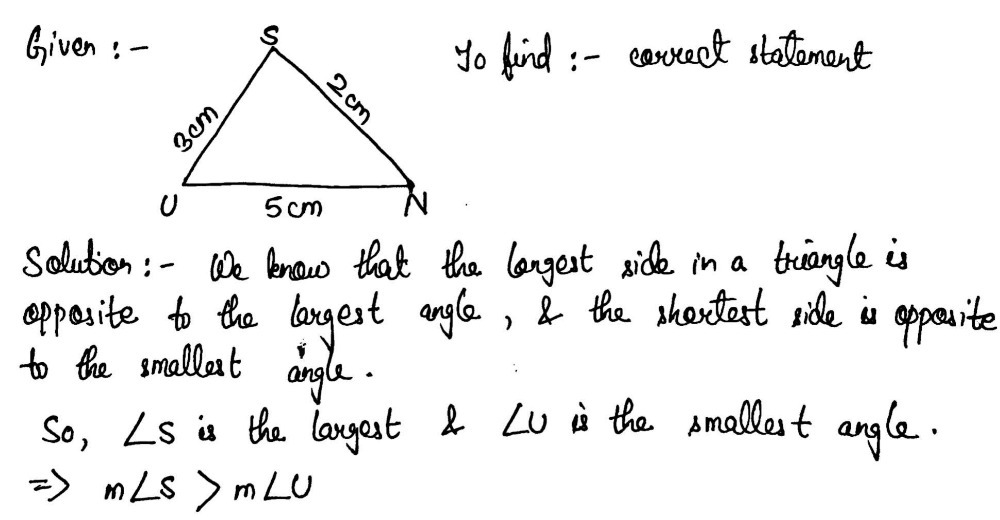 Given :-
S
To find :- correct statement
3cm
2cm
U
5cm
N
Solution :- We know that the longest side in a triangle is
opposite to the largest angle, & the shortest side is opposite
to the smallest angle.
So, ∠S is the largest & ∠U is the smallest angle.
=> m∠S > m∠U